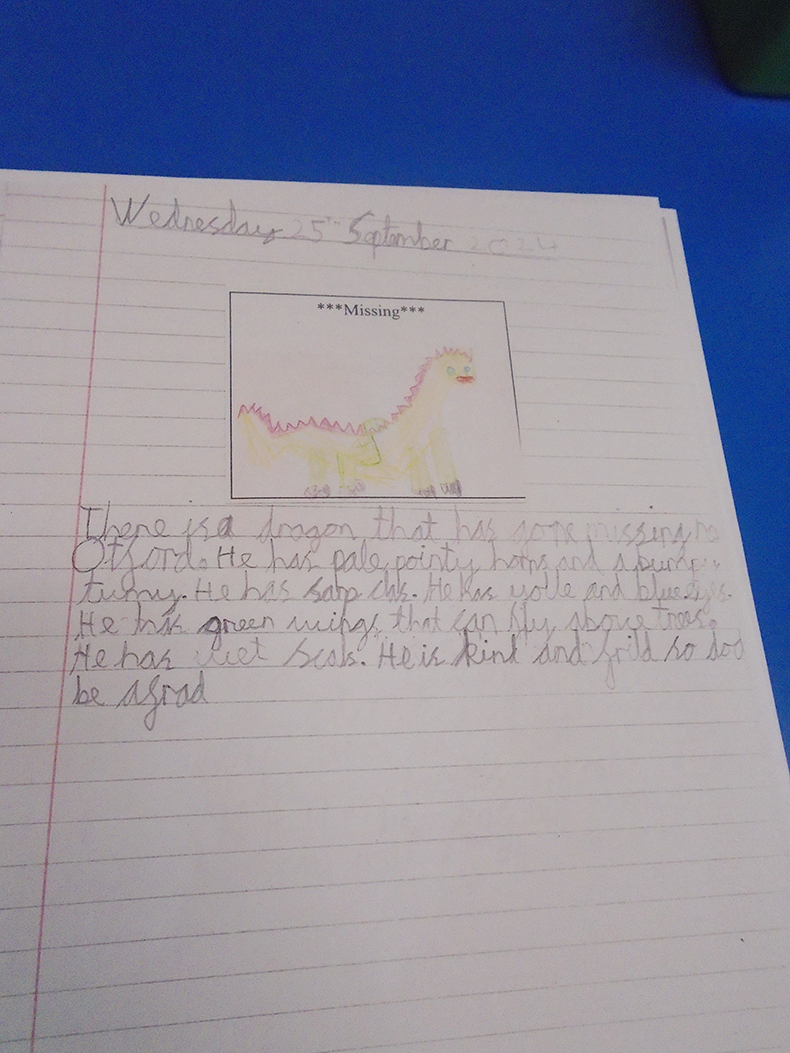 Wednesday 25th September 2024
***Missing***
There is a dragon that has gone missing
Otford. He has pale pointy horns and a
tumy. He has sarp clas. He has yolle and blue eyes.
He has green wings that can fly above trees.
He has scals. He is kind and frild so doo
be afrad